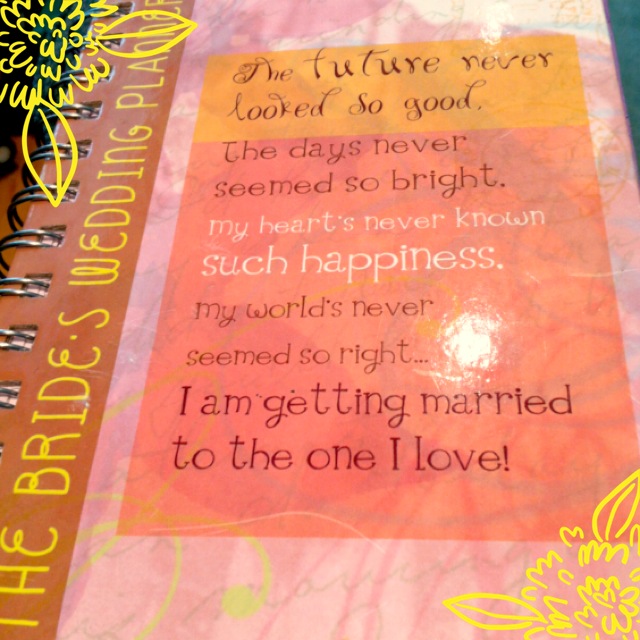 The future never
looked so good.
the days never
seemed so bright.
my heart's never known
such happiness.
my world's never
seemed so right...
I am getting married
to the one I love!
THE BRIDE'S WEDDING PLANNER